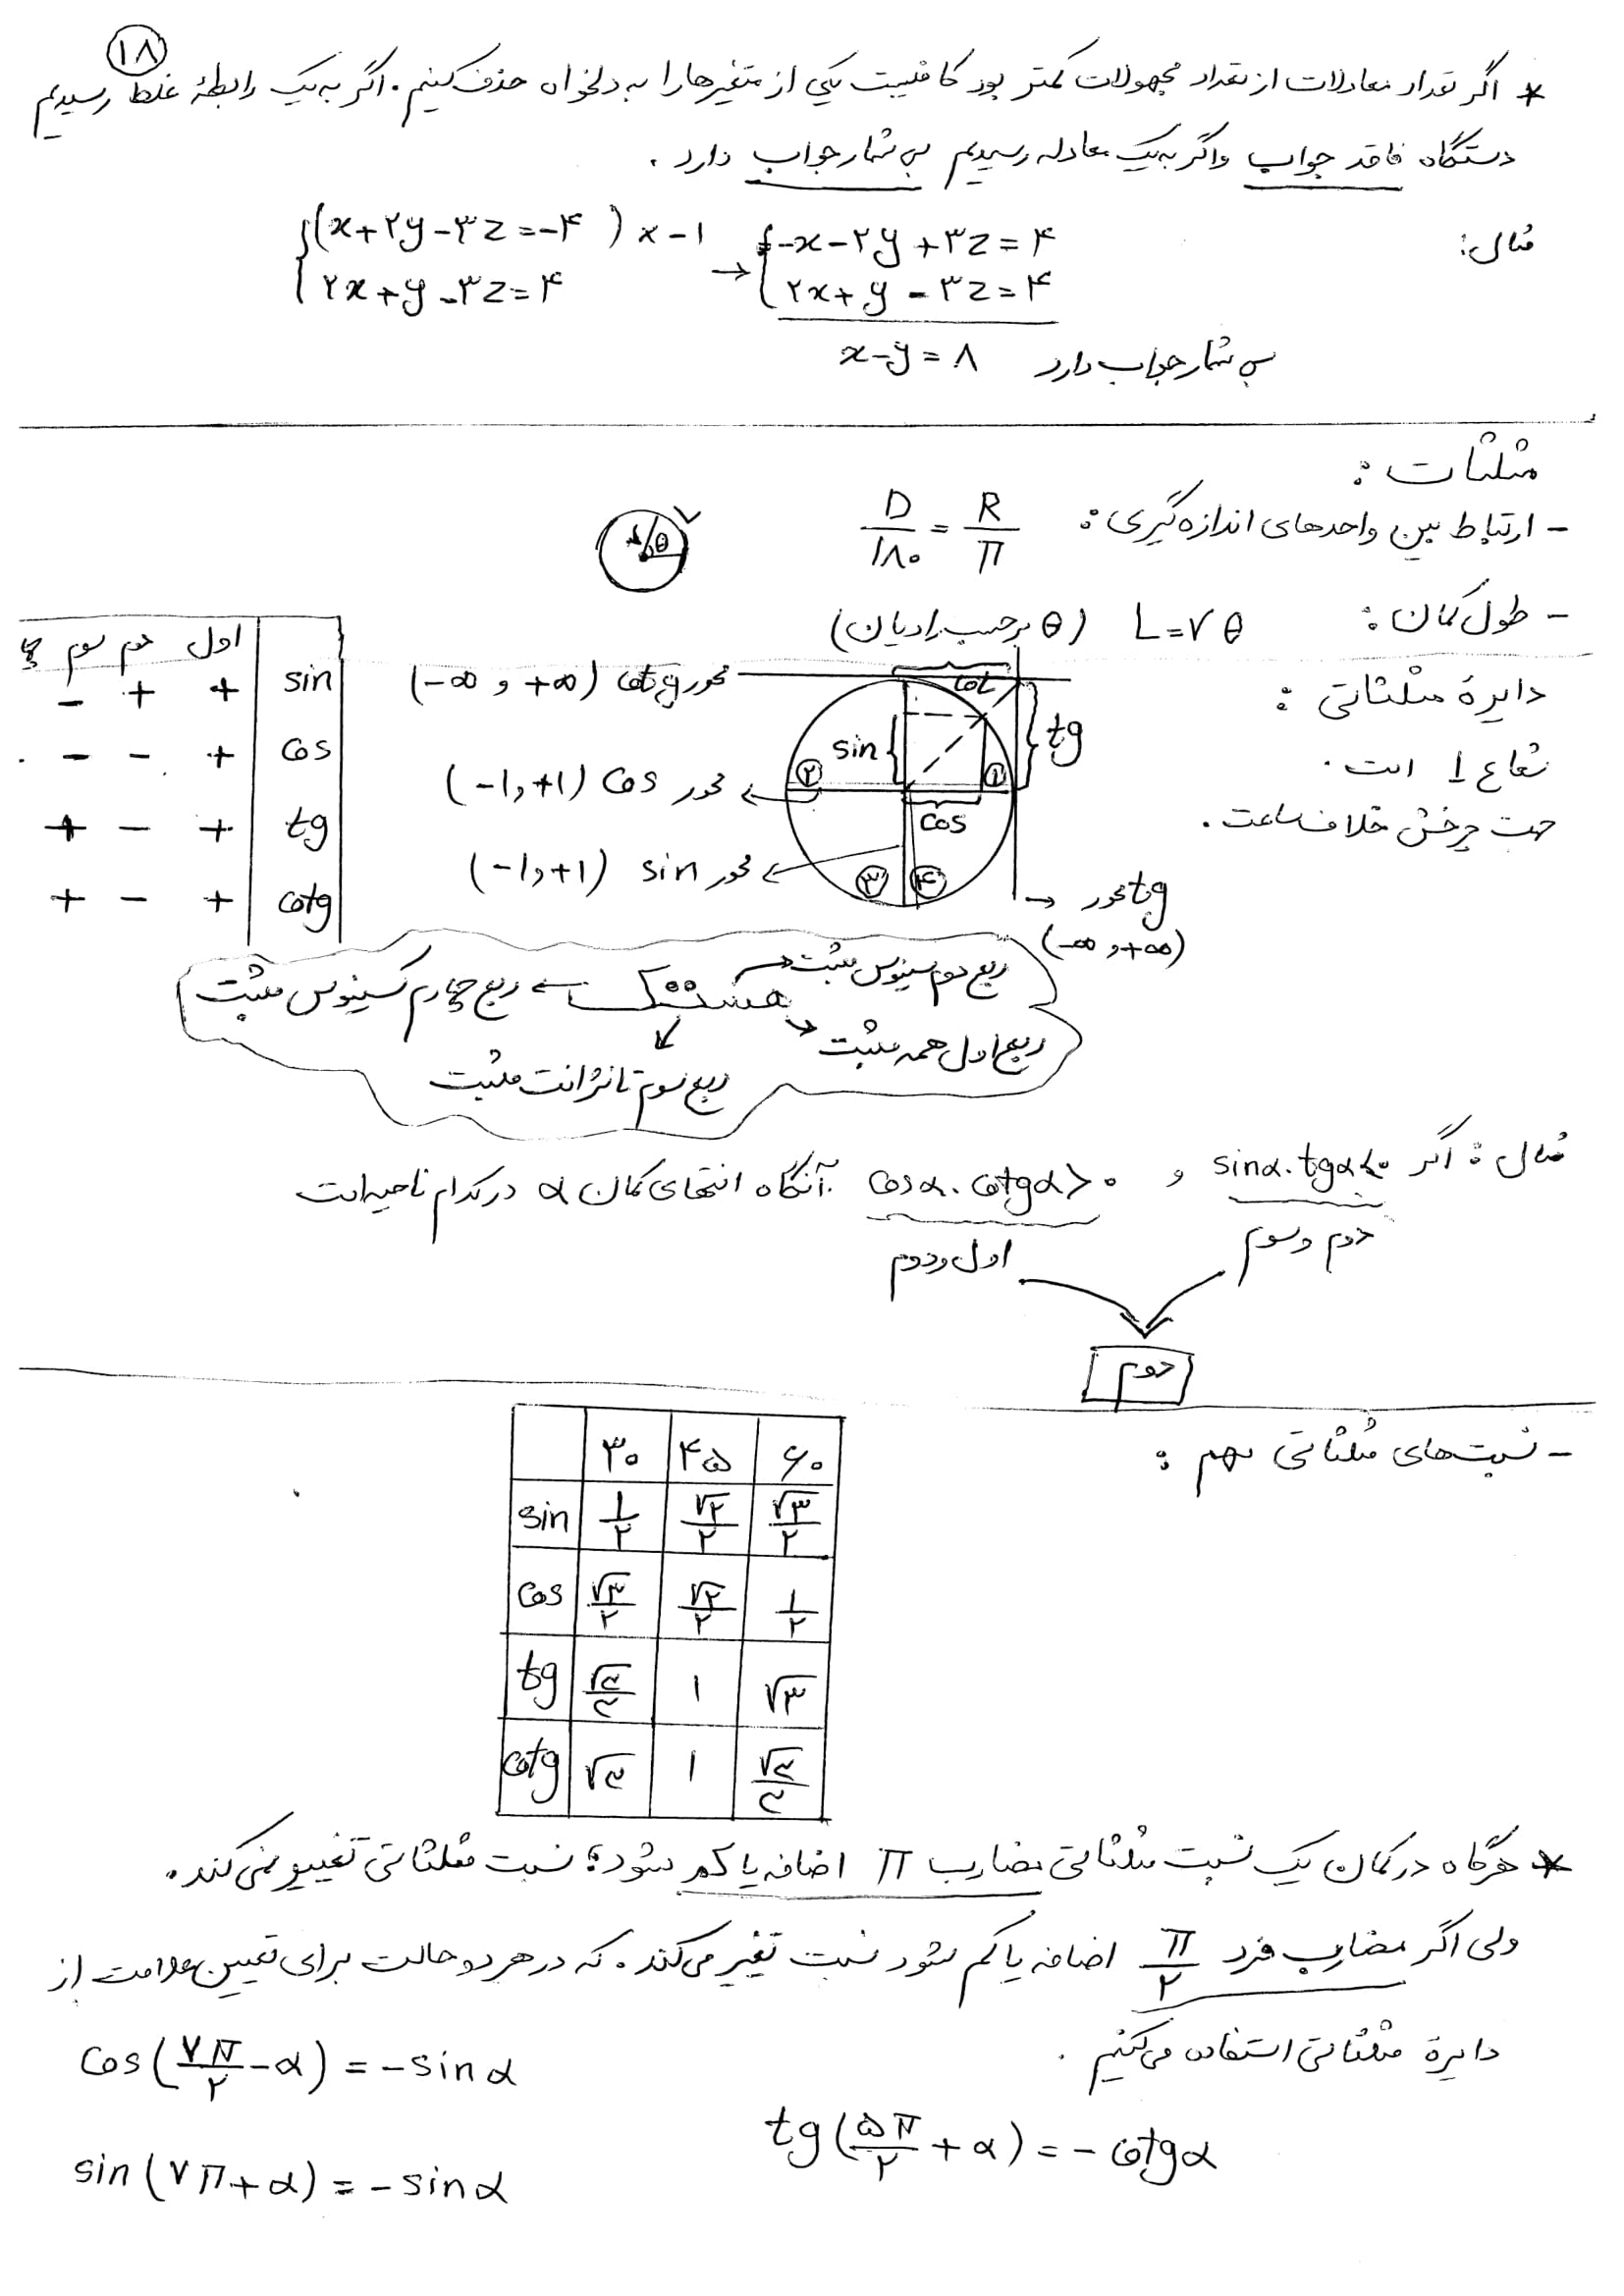 ۱۸
* اگر تعداد معادلات از تعداد مجهولات کمتر بود کافیست یکی از متغیرها را به دلخواه حذف کنیم. اگر به یک رابطهٔ غلط رسیدیم
دستگاه فاقد جواب و اگر به یک معادله رسیدیم بی شمار جواب دارد.
مثال:
{(x+۲y-۳z=-۴) x-۱ → {-x-۲y+۳z=۴
{۲x+y-۳z=۴ {۲x+y-۳z=۴
x-y=۸ بی شمار جواب دارد
مثلثات:
- ارتباط بین واحدهای اندازه گیری: D/۱۸۰ = R/π
r θ L
- طول کمان: L=rθ (θ برحسب رادیان)
دایرهٔ مثلثاتی:
شعاع ۱ است.
جهت چرخش خلاف ساعت.
محور cotg (-∞ و +∞)
cot
tg
sin
cos
۱ ۲ ۳ ۴
محور cos (-۱,+۱)
محور sin (-۱,+۱)
→ محور tg
(-∞ و +∞)
اول دوم سوم چها
sin + + -
cos + - -
tg + - +
cotg + - +
هستک
ربع دوم سینوس مثبت
ربع اول همه مثبت
ربع سوم تانژانت مثبت
ربع چهارم کسینوس مثبت
مثال: اگر sinα.tgα<۰ و cosα.cotgα>۰ آنگاه انتهای کمان α در کدام ناحیه است
دوم و سوم
اول و دوم
دوم
- نسبت‌های مثلثاتی مهم:
۳۰ ۴۵ ۶۰
sin ۱/۲ √۲/۲ √۳/۲
cos √۳/۲ √۲/۲ ۱/۲
tg √۳/۳ ۱ √۳
cotg √۳ ۱ √۳/۳
* هرگاه در کمان یک نسبت مثلثاتی مضارب π اضافه یا کم شود؛ نسبت مثلثاتی تغییر نمی‌کند.
ولی اگر مضارب فرد π/۲ اضافه یا کم شود نسبت تغیر می‌کند. که در هر دو حالت برای تعیین علامت از
دایرهٔ مثلثاتی استفاده می‌کنیم.
cos(۷π/۲-α)=-sinα
tg(۵π/۲+α)=-cotgα
sin(۷π+α)=-sinα